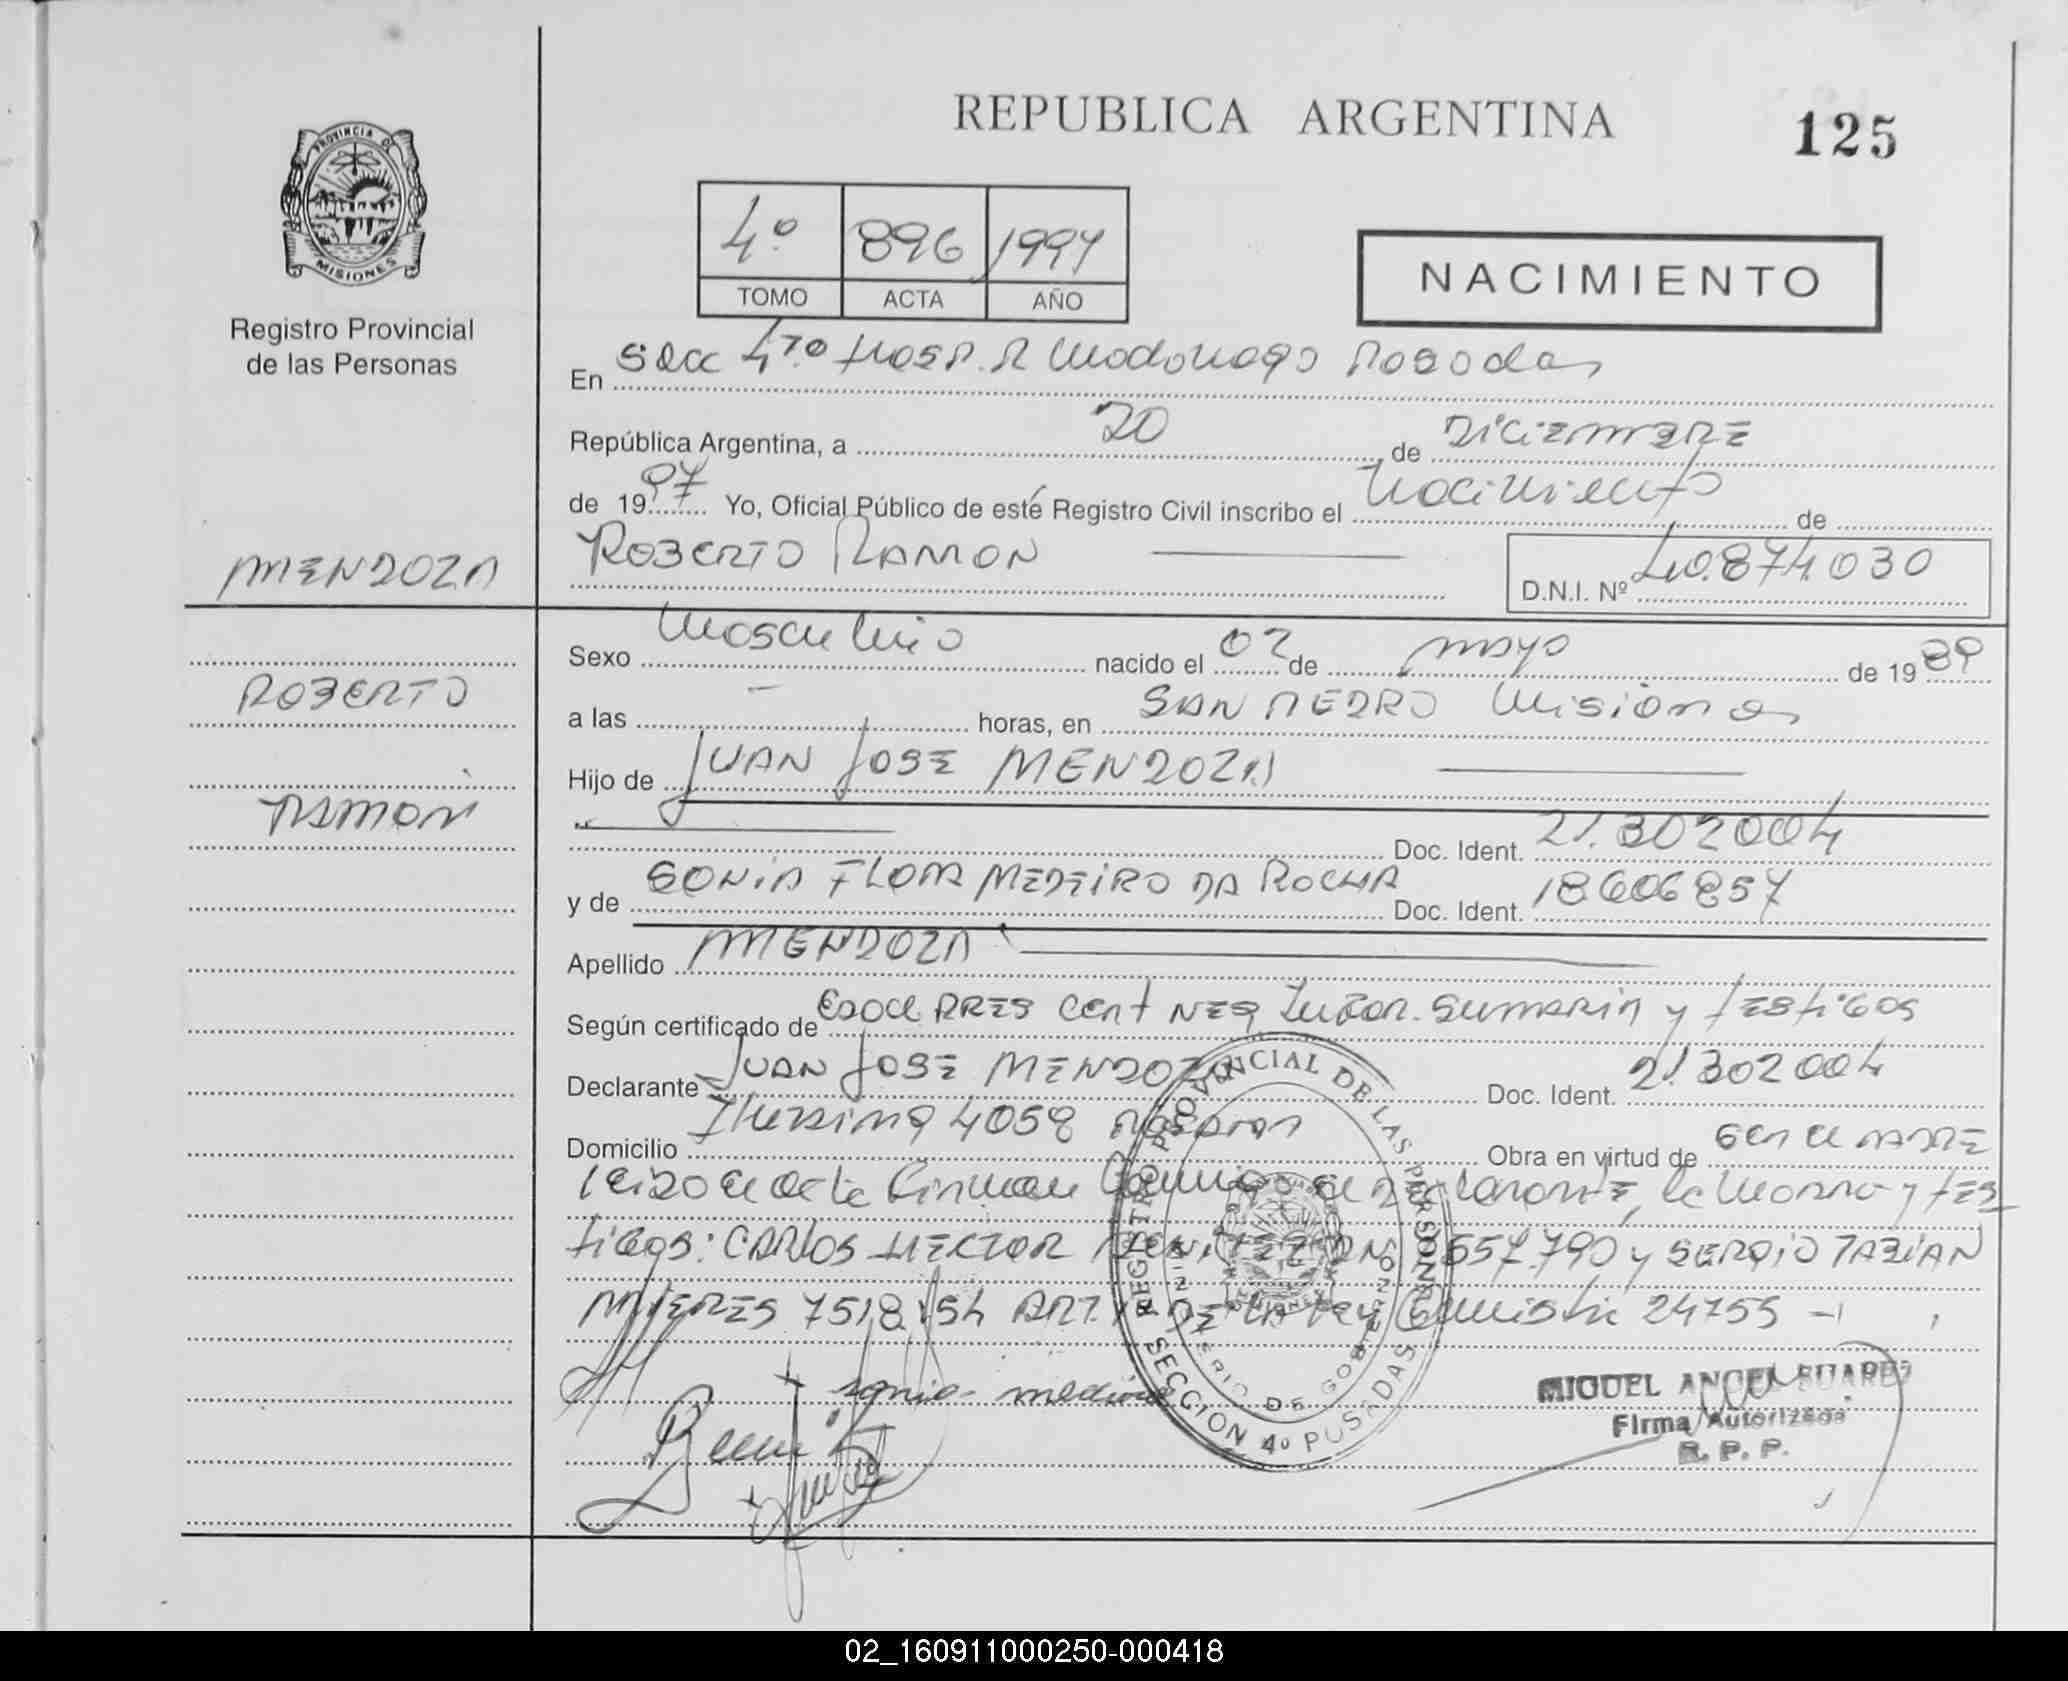 REPUBLICA ARGENTINA
125
PROVINCIA DE
MISIONES
Registro Provincial
de las Personas
4º 896 1997
TOMO ACTA AÑO
NACIMIENTO
En Secc 4ta Hosp. R Madariaga Posadas
República Argentina, a 20 de DICIEMBRE
de 1997 Yo, Oficial Público de este Registro Civil inscribo el Nacimiento de
MENDOZA
ROBERTO RAMON
D.N.I. Nº 40.874.030
Sexo Masculino nacido el 02 de mayo de 1989
ROBERTO
a las - horas, en SAN PEDRO Misiones
Hijo de JUAN JOSE MENDOZA
RAMON
Doc. Ident. 21.302004
y de SONIA FLOR MEDEIRO DA ROCHA Doc. Ident. 18606857
Apellido MENDOZA
Según certificado de Cert NEG SUMARIA y TESTIGOS
Declarante JUAN JOSE MENDOZA Doc. Ident. 21.302004
Domicilio 4058 Obra en virtud de ser el PADRE
Leido el acta Firman el DECLARANTE, la Madre y TES
tigos: CARLOS HECTOR 557.790 y SERGIO FABIAN
MIERES 7518154 ART. DE LA Ley 24755 -
sonia medeiro
REGISTRO PROVINCIAL DE LAS PERSONAS
MINISTERIO DE GOBIERNO
MISIONES
SECCION 4º POSADAS
MIGUEL ANGEL SUAREZ
Firma Autorizada
R. P. P.
02_160911000250-000418